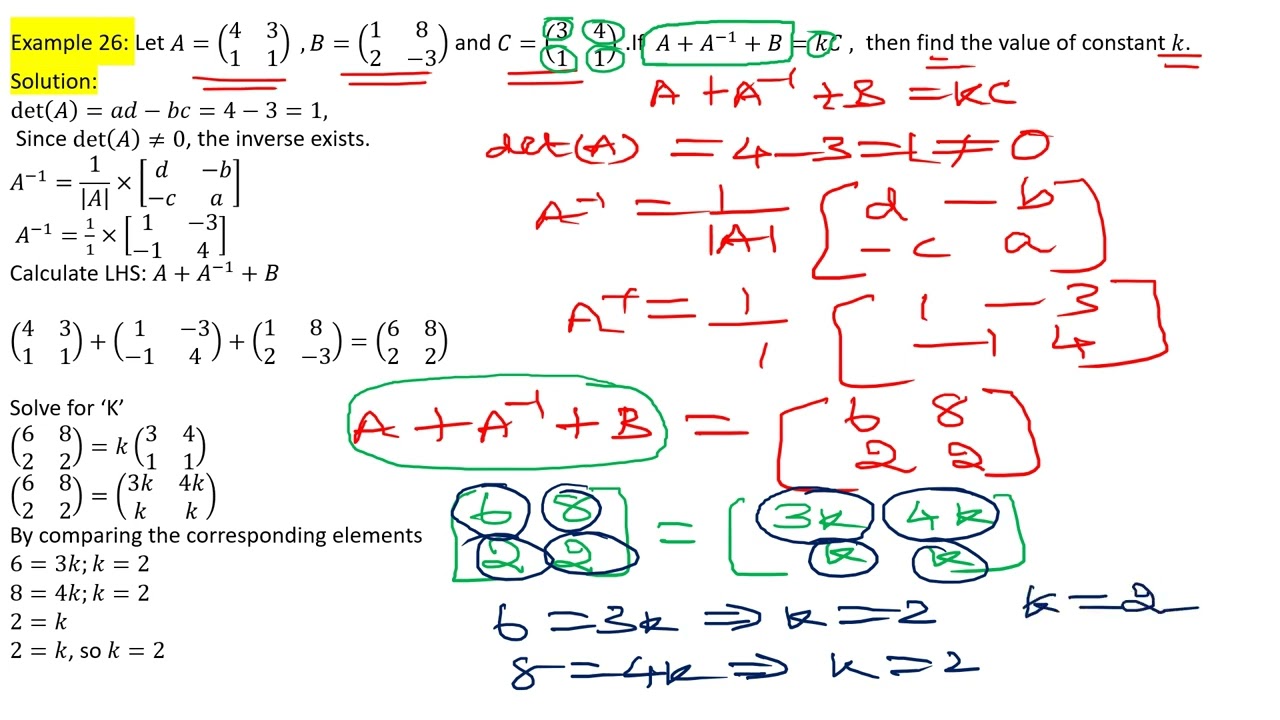 Example 26: Let A = (4 3 / 1 1) , B = (1 8 / 2 −3) and C = (3 4 / 1 1) .If A + A⁻¹ + B = kC , then find the value of constant k.
Solution:
det(A) = ad − bc = 4 − 3 = 1,
Since det(A) ≠ 0, the inverse exists.
A⁻¹ = 1/|A| × [d −b / −c a]
A⁻¹ = 1/1 × [1 −3 / −1 4]
Calculate LHS: A + A⁻¹ + B
(4 3 / 1 1) + (1 −3 / −1 4) + (1 8 / 2 −3) = (6 8 / 2 2)
Solve for ‘K’
(6 8 / 2 2) = k (3 4 / 1 1)
(6 8 / 2 2) = (3k 4k / k k)
By comparing the corresponding elements
6 = 3k; k = 2
8 = 4k; k = 2
2 = k
2 = k, so k = 2
A + A⁻¹ + B = KC
det(A) = 4 − 3 = 1 ≠ 0
A⁻¹ = 1/|A| [d − b / − c a]
A⁻¹ = 1/1 [1 − 3 / −1 4]
A + A⁻¹ + B = [6 8 / 2 2]
[6 8 / 2 2] = [3k 4k / k k]
6 = 3k ⇒ k = 2
k = 2
8 = 4k ⇒ k = 2